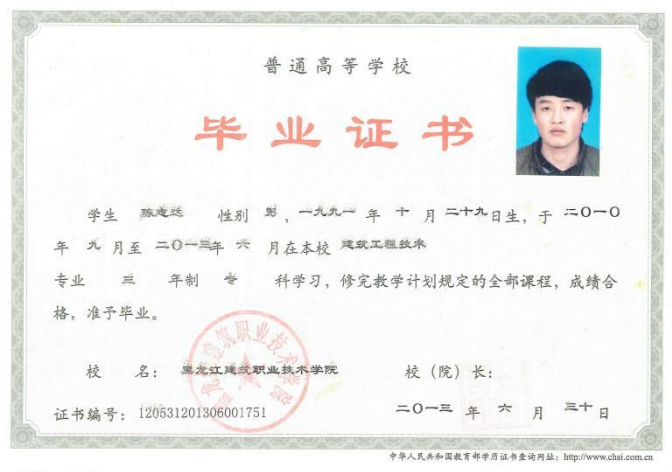 普通高等学校
毕业证书
学生 陈志达 性别 男，一九九一年 十 月 二十九日生，于 二〇一〇
年 九 月至 二〇一三年 六 月在本校 建筑工程技术
专业 三 年制 专 科学习，修完教学计划规定的全部课程，成绩合
格，准予毕业。
校 名：黑龙江建筑职业技术学院 校（院）长：
证书编号：120531201306001751 二〇一三 年 六 月 三十日
中华人民共和国教育部学历证书查询网址：http://www.chsi.com.cn